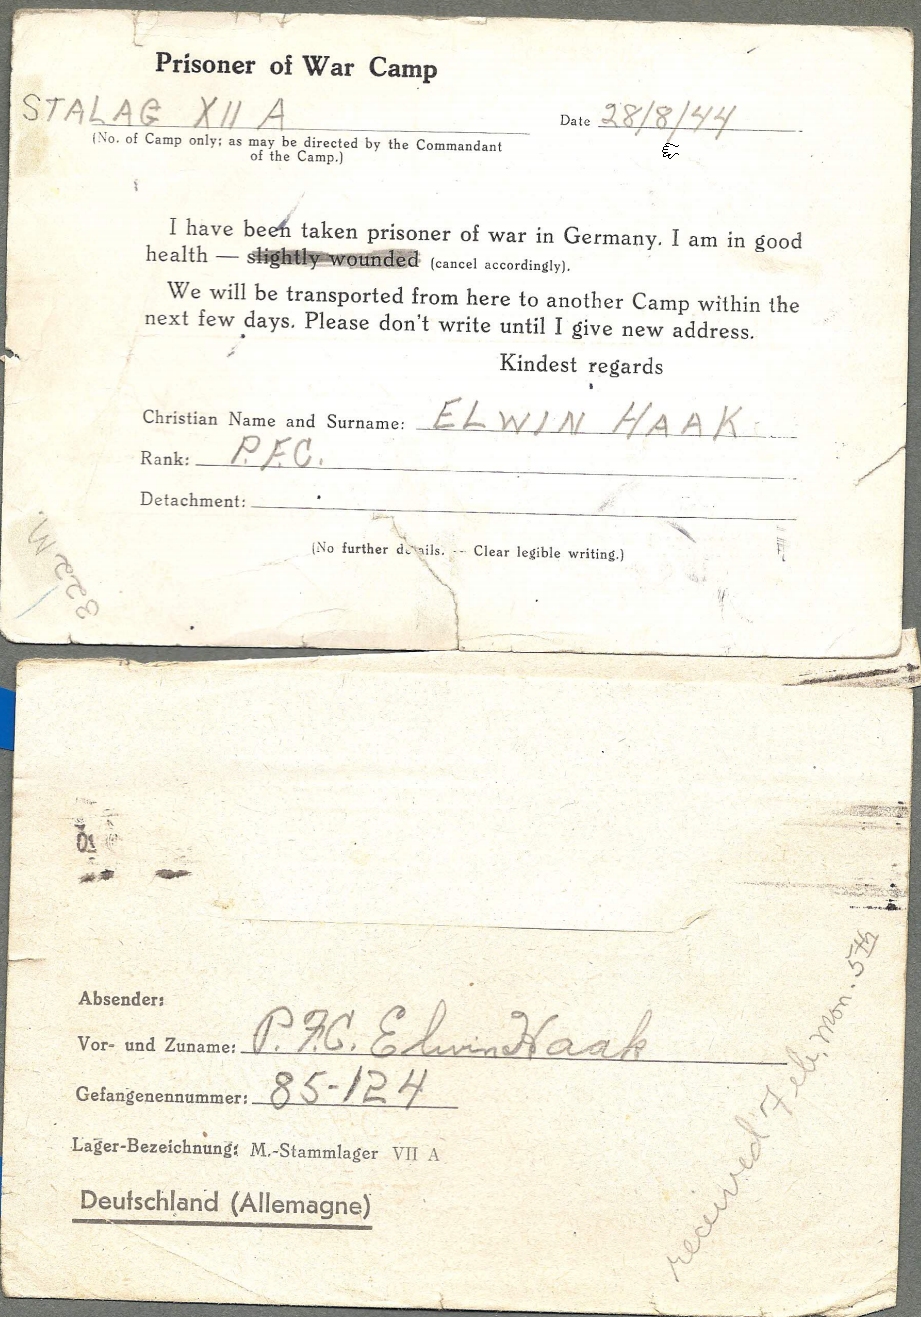 Prisoner of War Camp
STALAG XII A
Date 28/8/44
(No. of Camp only; as may be directed by the Commandant
of the Camp.)
I have been taken prisoner of war in Germany. I am in good
health — slightly wounded (cancel accordingly).
We will be transported from here to another Camp within the
next few days. Please don't write until I give new address.
Kindest regards
Christian Name and Surname: ELWIN HAAK
Rank: P.F.C.
Detachment:
(No further details. — Clear legible writing.)
322 M.
Absender:
Vor- und Zuname: P.F.C. Elwin Haak
Gefangenennummer: 85-124
Lager-Bezeichnung: M.-Stammlager VII A
Deutschland (Allemagne)
received Feb. Mon. 5th